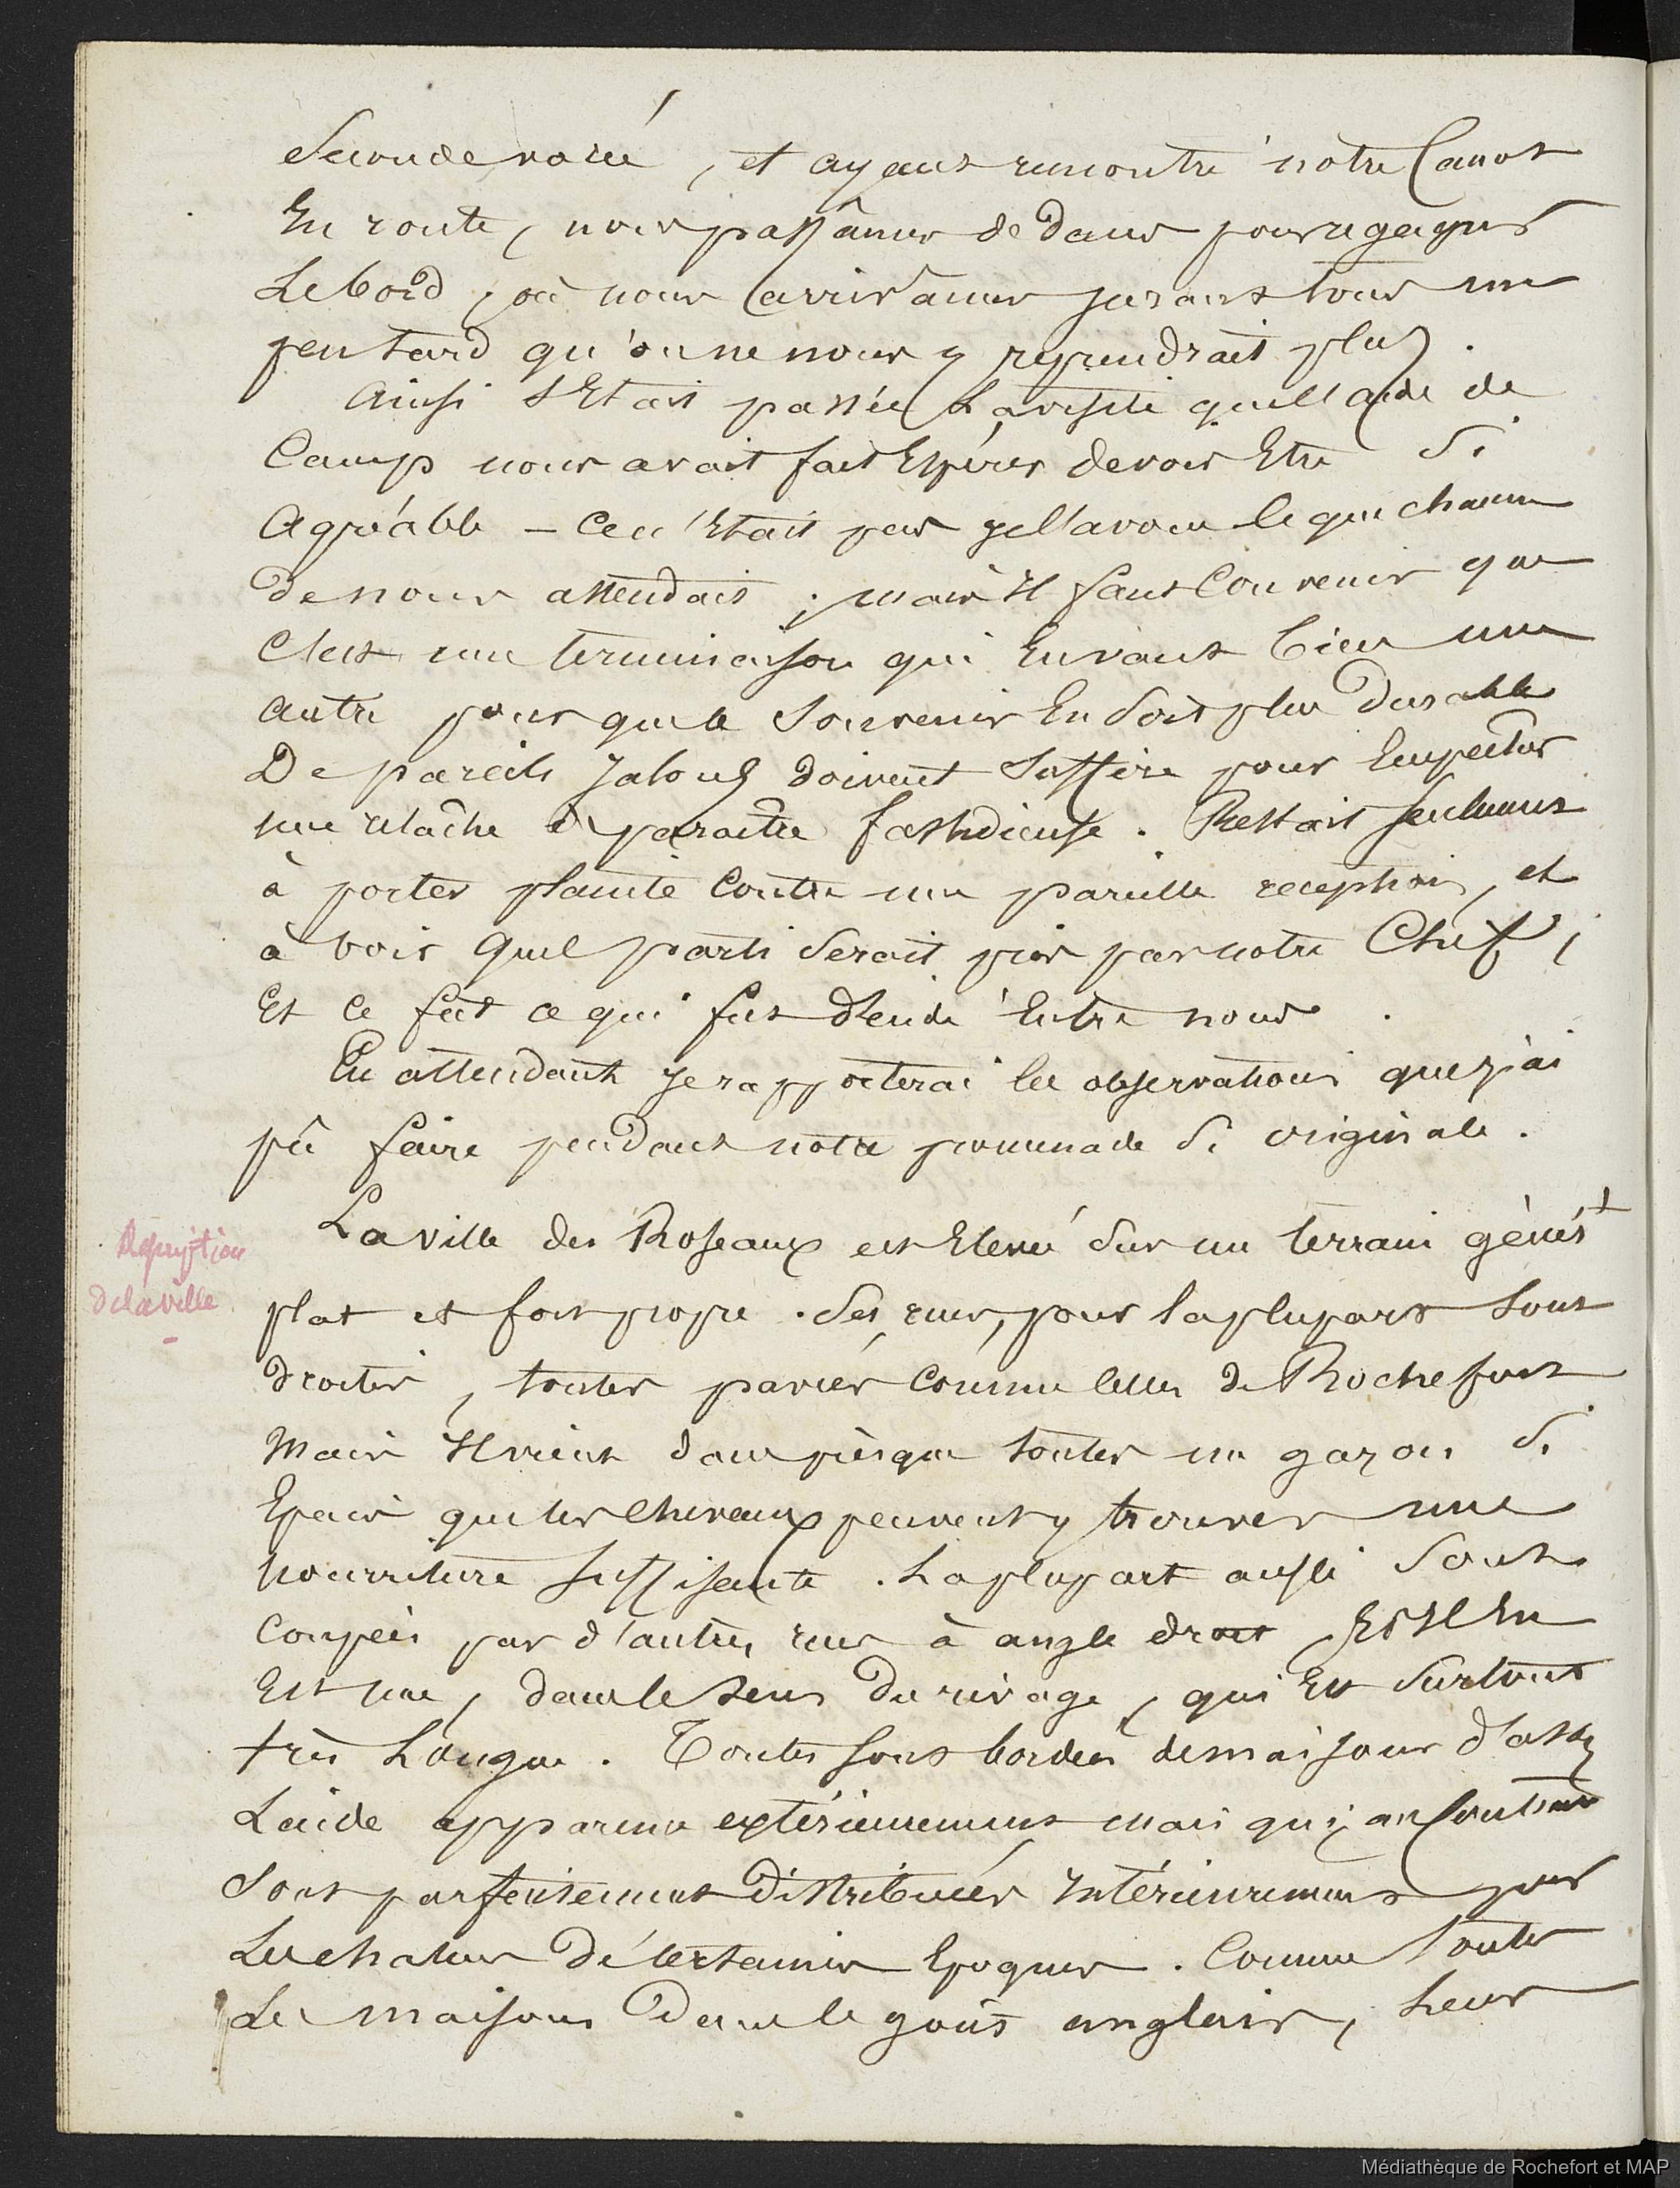 Seconde norée, et ayant rencontré notre Canot
En route, nous passâmes dedans pour regagner
Le bord, où nous arrivâmes jurant tous un
peu tard qu'on ne nous y reprendrait plus.
Ainsi s'Etait passée La visite que l'aide de
Camp nous avait fait Espérer devoir Etre Si
Agréable – Ce n'Etait pas je l'avoue ce que chacun
de nous attendait ; mais Il faut Convenir que
C'est une terminaison qui En vaut bien une
autre pour que le Souvenir En Soit plus Durable
De pareils Jalons doivent Suffire pour Empêcher
une relâche de paraître fastidieuse. Restait seulement
à porter plainte Contre une pareille reception, et
à voir quel parti Serait pris par notre Chef ;
Et ce fut ce qui fut décidé Entre nous.
En attendant Je rapporterai les observations que j'ai
pû faire pendant notre promenade Si originale.
Description
de la ville
La ville des Roseaux est Elevée Sur un terrain génér.t
plat et fort propre. Ses rues, pour la plupart Sont
droites, toutes pavées Comme celles de Rochefort
Mais Il vient dans presque toutes un gazon Si
Epais que les chevaux peuvent y trouver une
nourriture Suffisante. La plupart aussi Sont
Coupées par d'autres rues à angle droit, Et Il En
Est une, dans le Sens Du rivage, qui Est Surtout
très Longue. Toutes sont bordées de maisons d'assez
Laide apparence extérieurement mais qui, au Contraire
Sont parfaitement Distribuées Intérieurement pour
Les chaleurs De certaines Epoques. Comme toutes
Les maisons Dans le goût anglais, Leur
Médiathèque de Rochefort et MAP